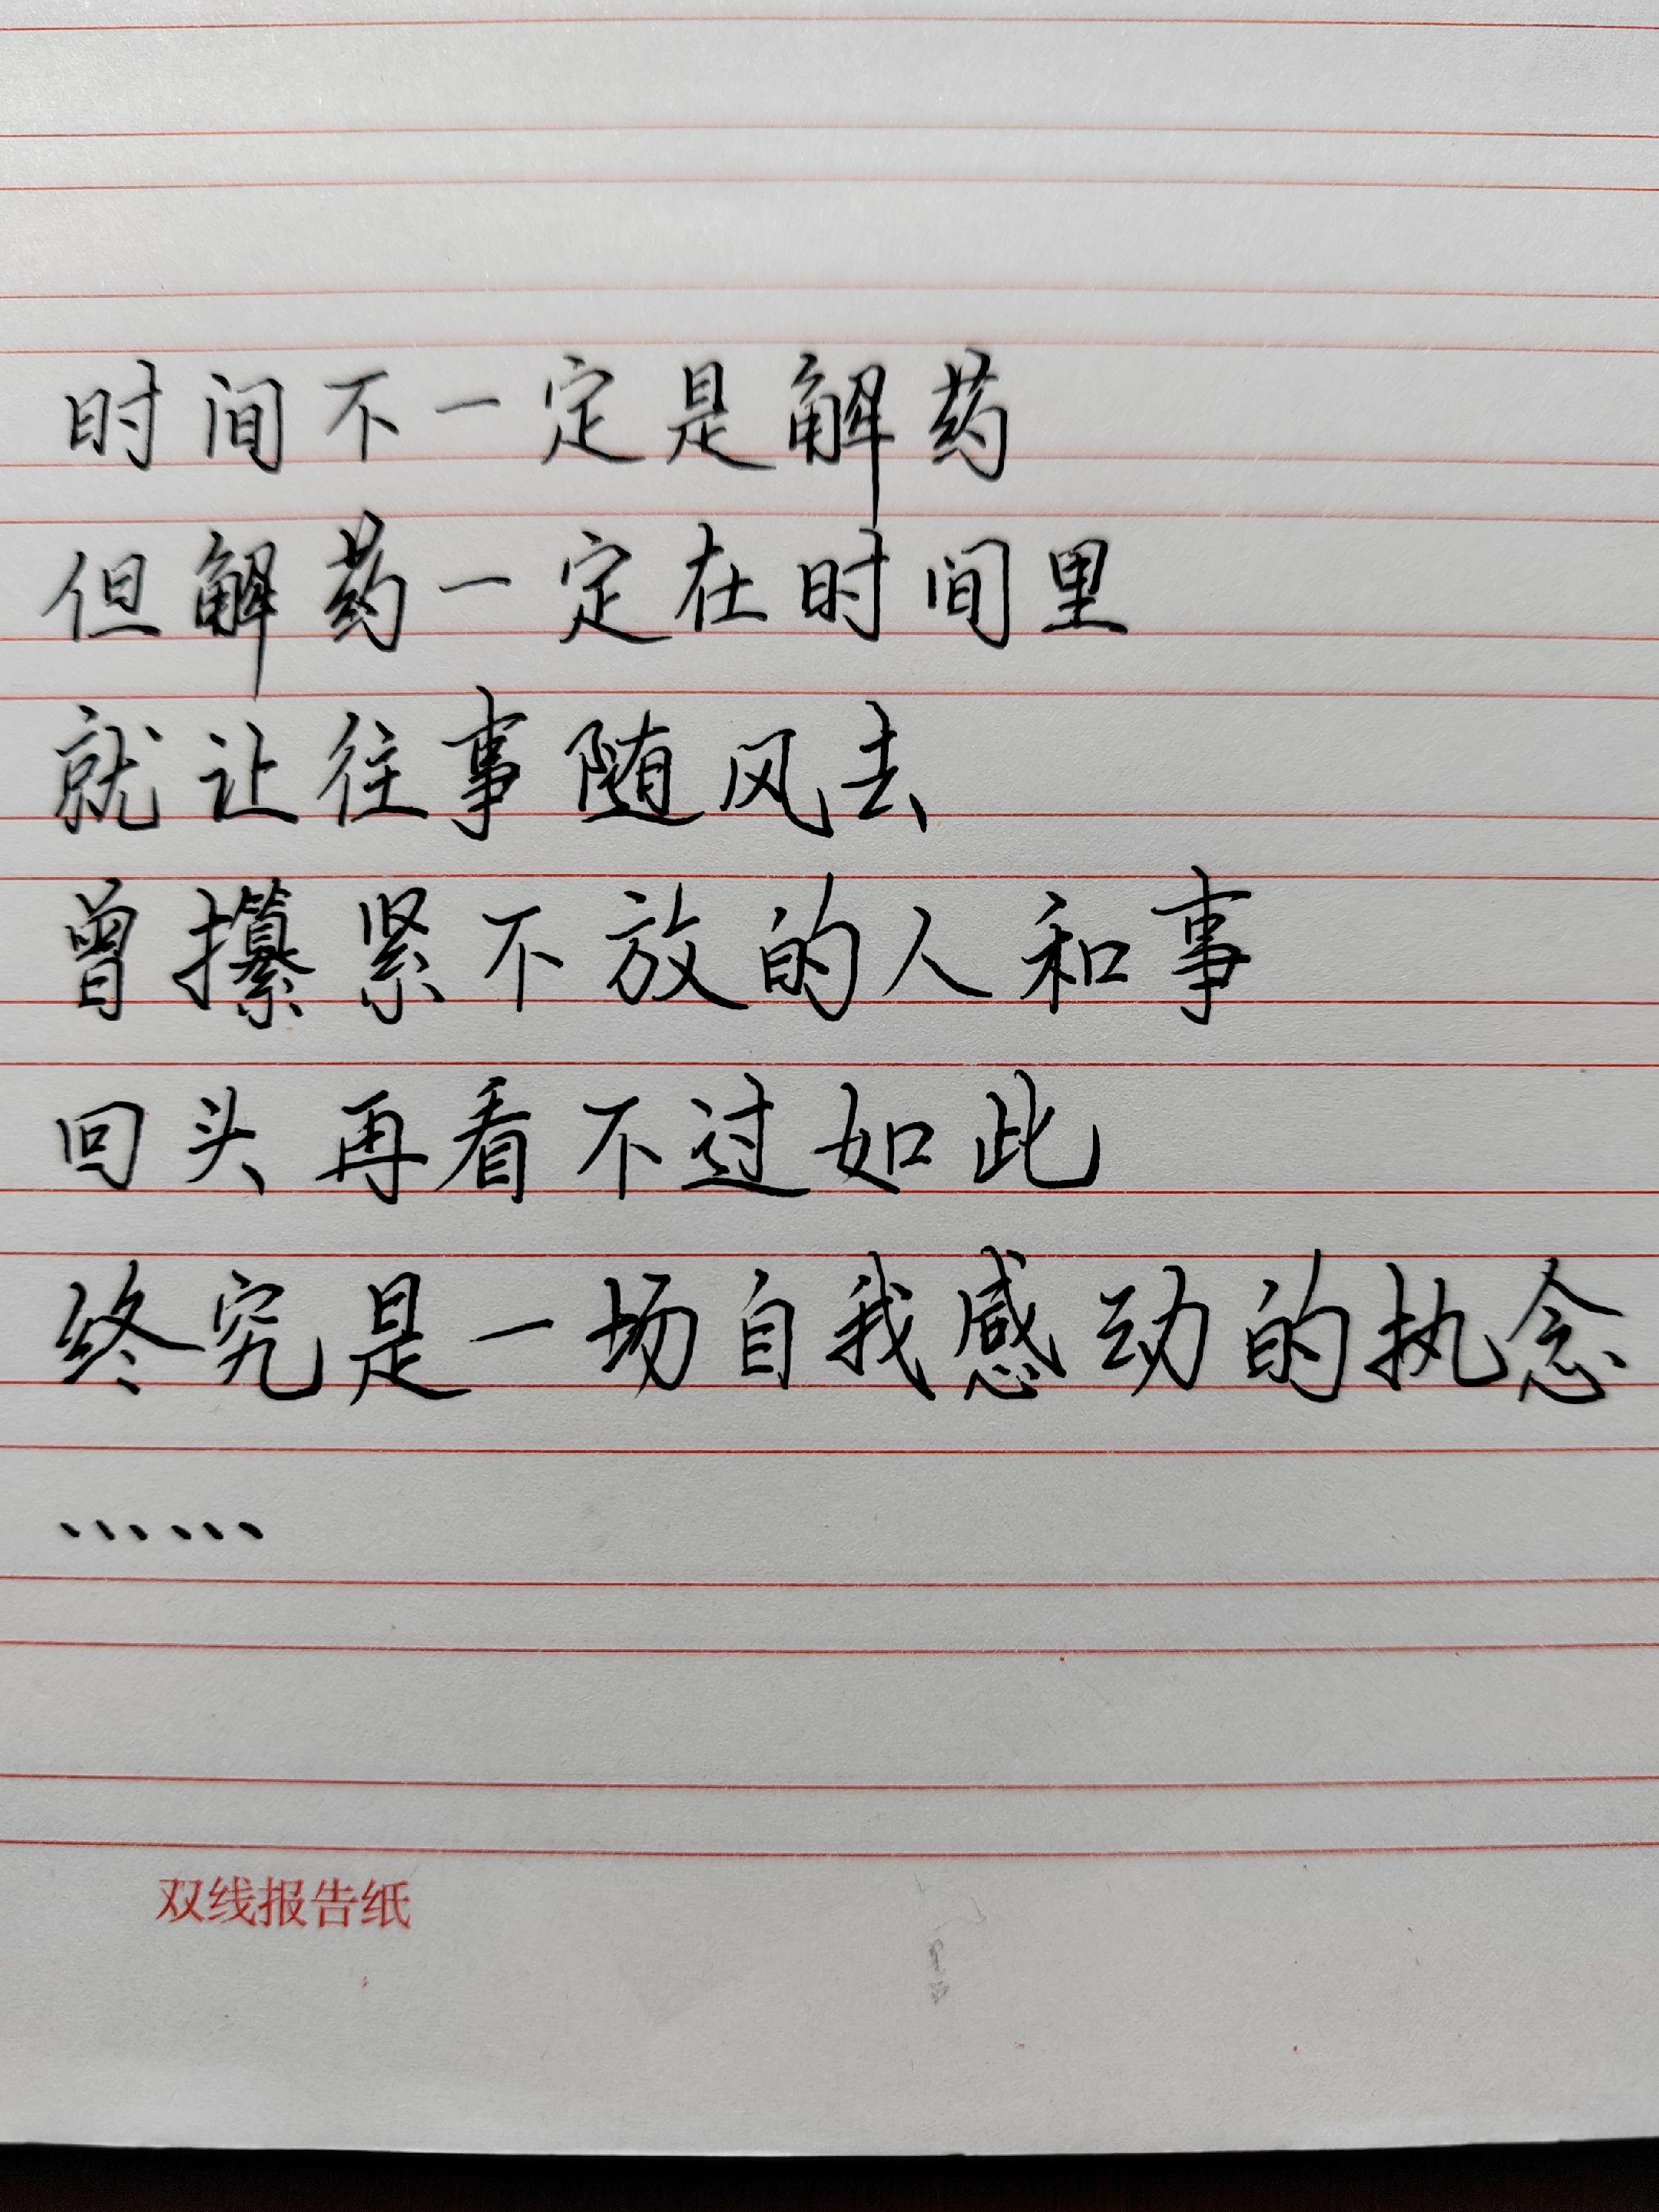 时间不一定是解药
但解药一定在时间里
就让往事随风去
曾攥紧不放的人和事
回头再看不过如此
终究是一场自我感动的执念
……
双线报告纸